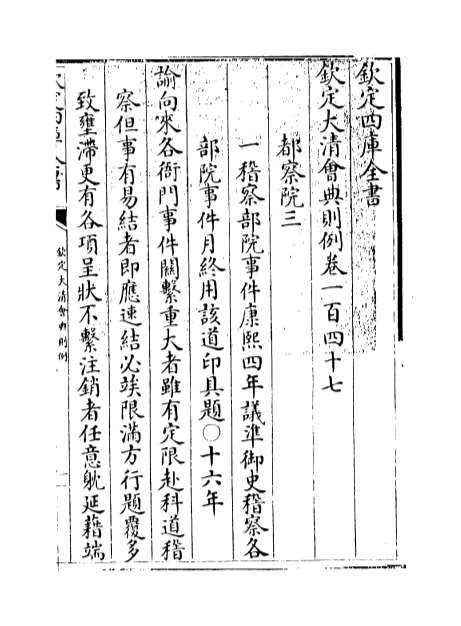 欽定四庫全書
欽定大清會典則例卷一百四十七
都察院三
一稽察部院事件康熙四年議準御史稽察各
部院事件月終用該道印具題〇十六年
諭向來各衙門事件關繫重大者雖有定限赴科道稽
察但事有易結者即應速結必俟限滿方行題覆多
致壅滯更有各項呈狀不繫注銷者任意躭延藉端
欽定大清會典則例
一